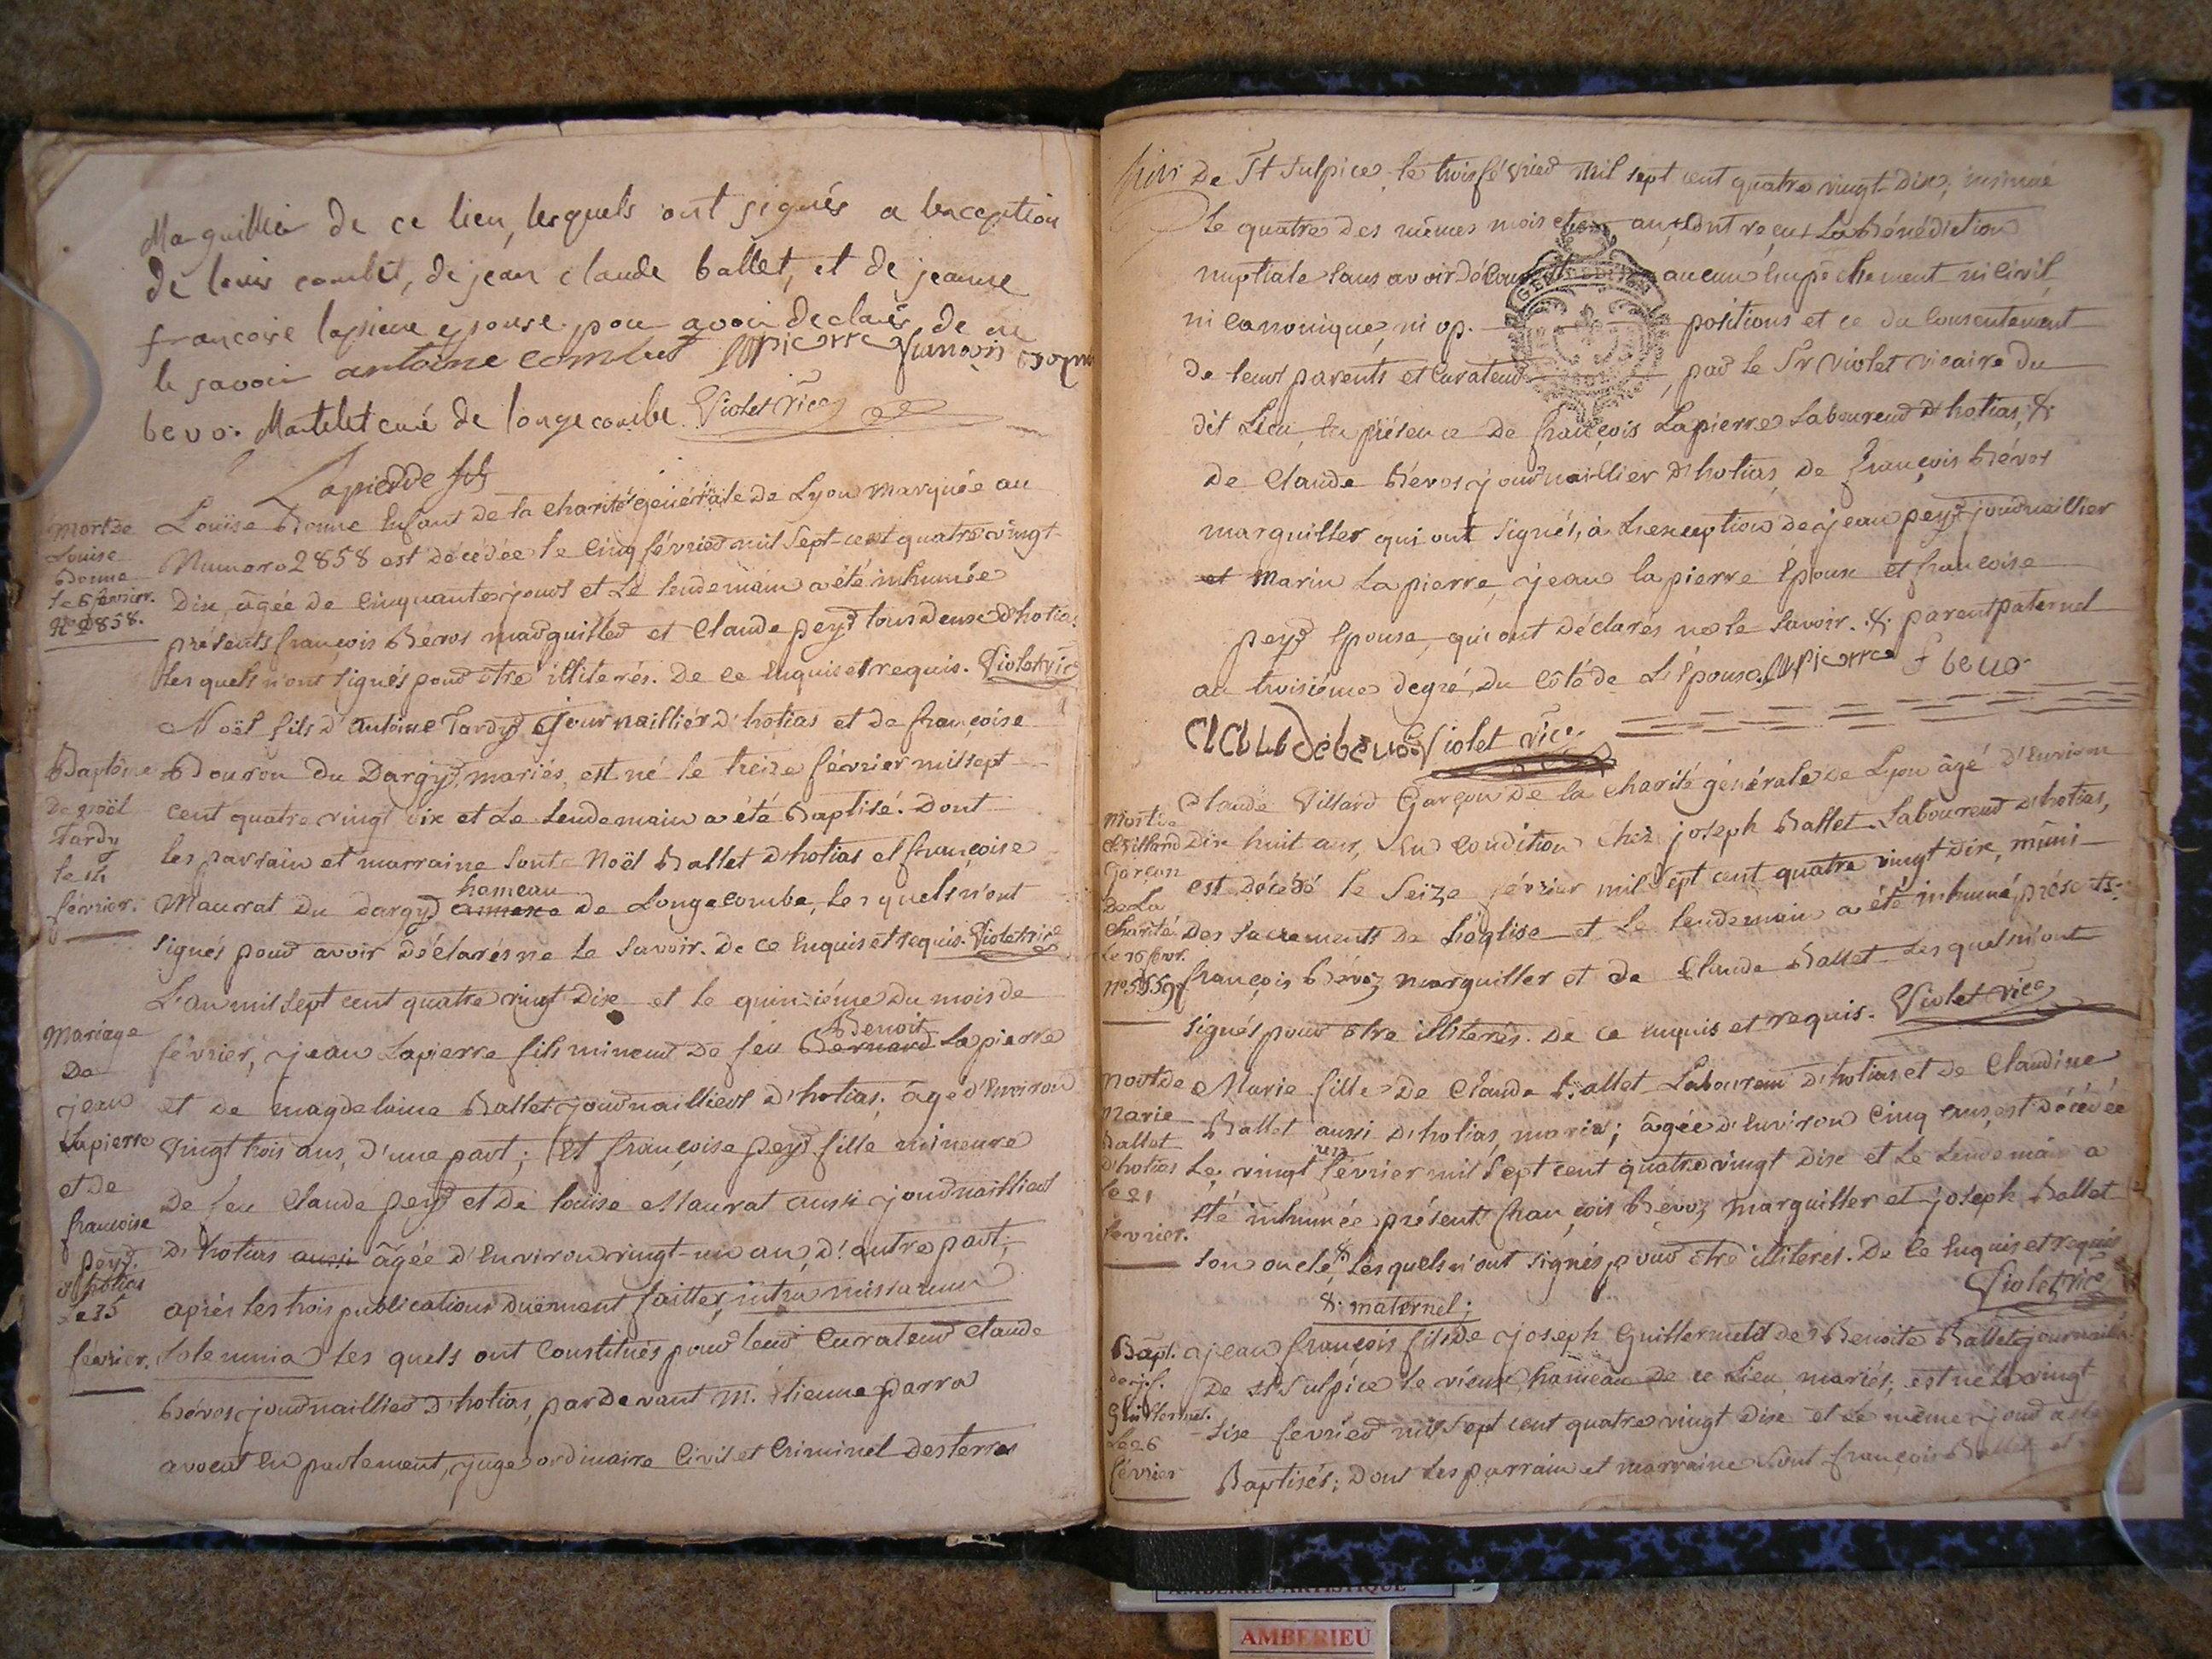 Marguillier de ce lieu, lesquels ont signés a lexception
de louis combet, de jean claude ballet, et de jeanne
francoise lapierre epouse pour avoir declarés de ne
le savoir antoine combet lapierre
bevo. Martelet curé de longecombe Violet vice
Lapierre fils
mort de
Louise
Bonne
le 6 février.
N° 2858.
Louise Bonne Enfant de la charité générale de Lyon Marquée au
Numero 2858 est décédée le Cinq février mil Sept-cent quatre vingt-
Dix, âgée de Cinquante jours et Le lendemain a été inhumée
présents françois Bévos marguiller et Claude peyd tous deux d'hotias
Lesquels n'ont signés pour être illiterés. De ce Enquis et requis. Violet vic
Baptême
De noël
Tardy
le 14
février.
Noël fils d'antoine Tardy journaillier d'hotias et de françoise
Bouron du Dargyd mariés, est né le treize février mil sept
cent quatre vingt dix et Le Lendemain a été Baptisé. Dont
les parrain et marraine sont Noël Ballet d'hotias et françoise
hameau
Maurat du dargyd annexe de Longecombe, Lesquels n'ont
signés pour avoir déclarés ne Le Savoir. De ce Enquis et requis. Violet vice
Mariage
De
jean
Lapierre
et de
francoise
peyd.
d'hotias
Le 15
février.
L'an mil sept cent quatre vingt Dix et le quinziéme du mois de
Benoit
février, jean Lapierre fils mineur De feu Bernard Lapierre
et de magdelaine Ballet journailliers d'hotias, âgé d'Environ
Vingt trois ans, d'une part; Et françoise peyd fille mineure
De feu Claude peyd et De louise Maurat aussi journailliers
D'hotias aussi âgée d'Environ vingt-un an, d'autre part,
après les trois publications duëment faittes intra missarum
Solemnia Les quels ont Constitués pour leur Curateur Claude
Bévos journaillier D'hotias, pardevant M. Etienne parra
avocat en parlement, juge ordinaire Civil et Criminel des terres
De St Sulpice, le trois février mil sept cent quatre vingt-Dix, insinué
Le quatre des mêmes mois et an, ont reçu La Bénédiction
nuptiale sans avoir découvert aucun Empêchement ni Civil,
ni Canonique, ni op. positions et ce du Consentement
de leurs parents et Curateur, par le Sr Violet vicaire du
dit Lieu, En présence de françois Lapierre Laboureur d'hotias, &.
De Claude Bévos journaillier d'hotias, de françois Bévos
marguiller qui ont signés, à Lexception de jean peyd journaillier
et Marin Lapierre, jean lapierre Epoux et francoise
peyd Epouse, qui ont déclarés ne le savoir. &. parent paternel
au troisiéme degré, Du côté de L'épouse. lapierre f bévo
Claude bevos Violet vice
Mort de
C Villard
Garçon
De La
Charité
Le 16 fevr.
Claude Villard Garçon de la Charité générale de Lyon âgé d'Environ
Dix huit ans, En Condition Chez joseph Ballet Laboureur d'hotias,
est décédé le Seize février mil sept cent quatre vingt dix, muni
Des Sacrements De L'église et Le lendemain a été inhumé, présents
françois Bévoz marguiller et de Claude Ballet Lesquels n'ont
signés pour être illiterés. De ce Enquis et requis. Violet vice
Mort de
Marie
Ballet
d'hotias
le 21
fevrier.
Marie fille De Claude Ballet Laboureur d'hotias et de Claudine
Ballet aussi d'hotias, mariés; âgée d'Environ Cinq ans, est décédée
un
Le vingt février mil Sept cent quatre vingt Dix et Le Lendemain a
été inhumée, présents françois Bévoz marguiller et joseph Ballet
son oncle &, Lesquels n'ont signés pour être illiterés. De Ce Enquis et requis
&. maternel; Violet vice
Bapt.
de j f.
Guillermet.
Le 26
février
jean françois fils de joseph Guillermet et de Benoite Ballet journaill.
De St Sulpice le vieux hameau de ce Lieu mariés, est né Le vingt
-sixe fevrier mil Sept cent quatre vingt dix et Le même jour a été
Baptisés; Dont les parrain et marraine Sont françois Ballet et
AMBERIEU